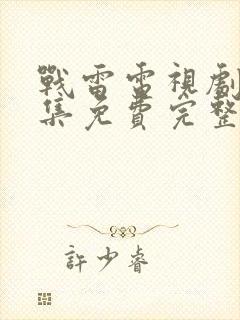 戰雷電視劇
集免費完整
許少睿